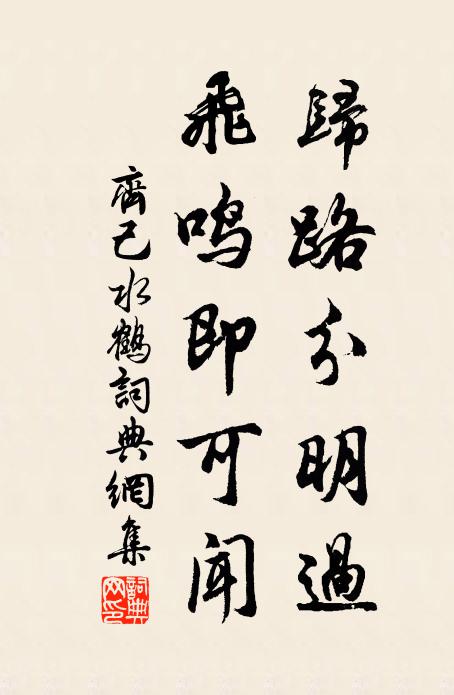 歸路分明過
飛鳴即可聞
齊己水鶴詞典網集
詞典網印